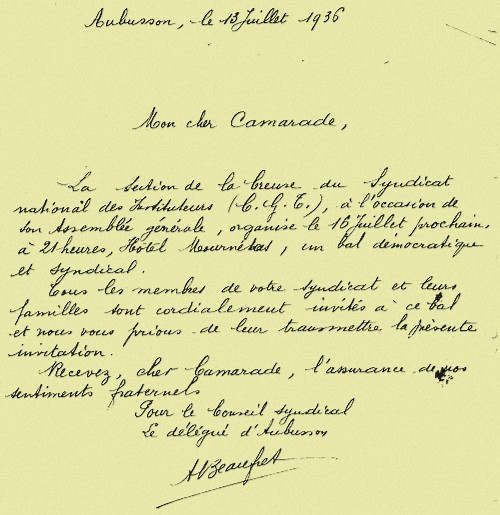 Aubusson, le 13 Juillet 1936
Mon cher Camarade,
La section de la Creuse du Syndicat
national des Instituteurs (C.G.T.), à l'occasion de
son Assemblée générale, organise le 16 Juillet prochain,
à 21 heures, Hôtel Mournétas, un bal democratique
et syndical.
Tous les membres de votre syndicat et leurs
familles sont cordialement invités à ce bal
et nous vous prions de leur transmettre la présente
invitation.
Recevez, cher Camarade, l'assurance de nos
sentiments fraternels
Pour le Conseil syndical
Le délégué d'Aubusson
A Beaufret